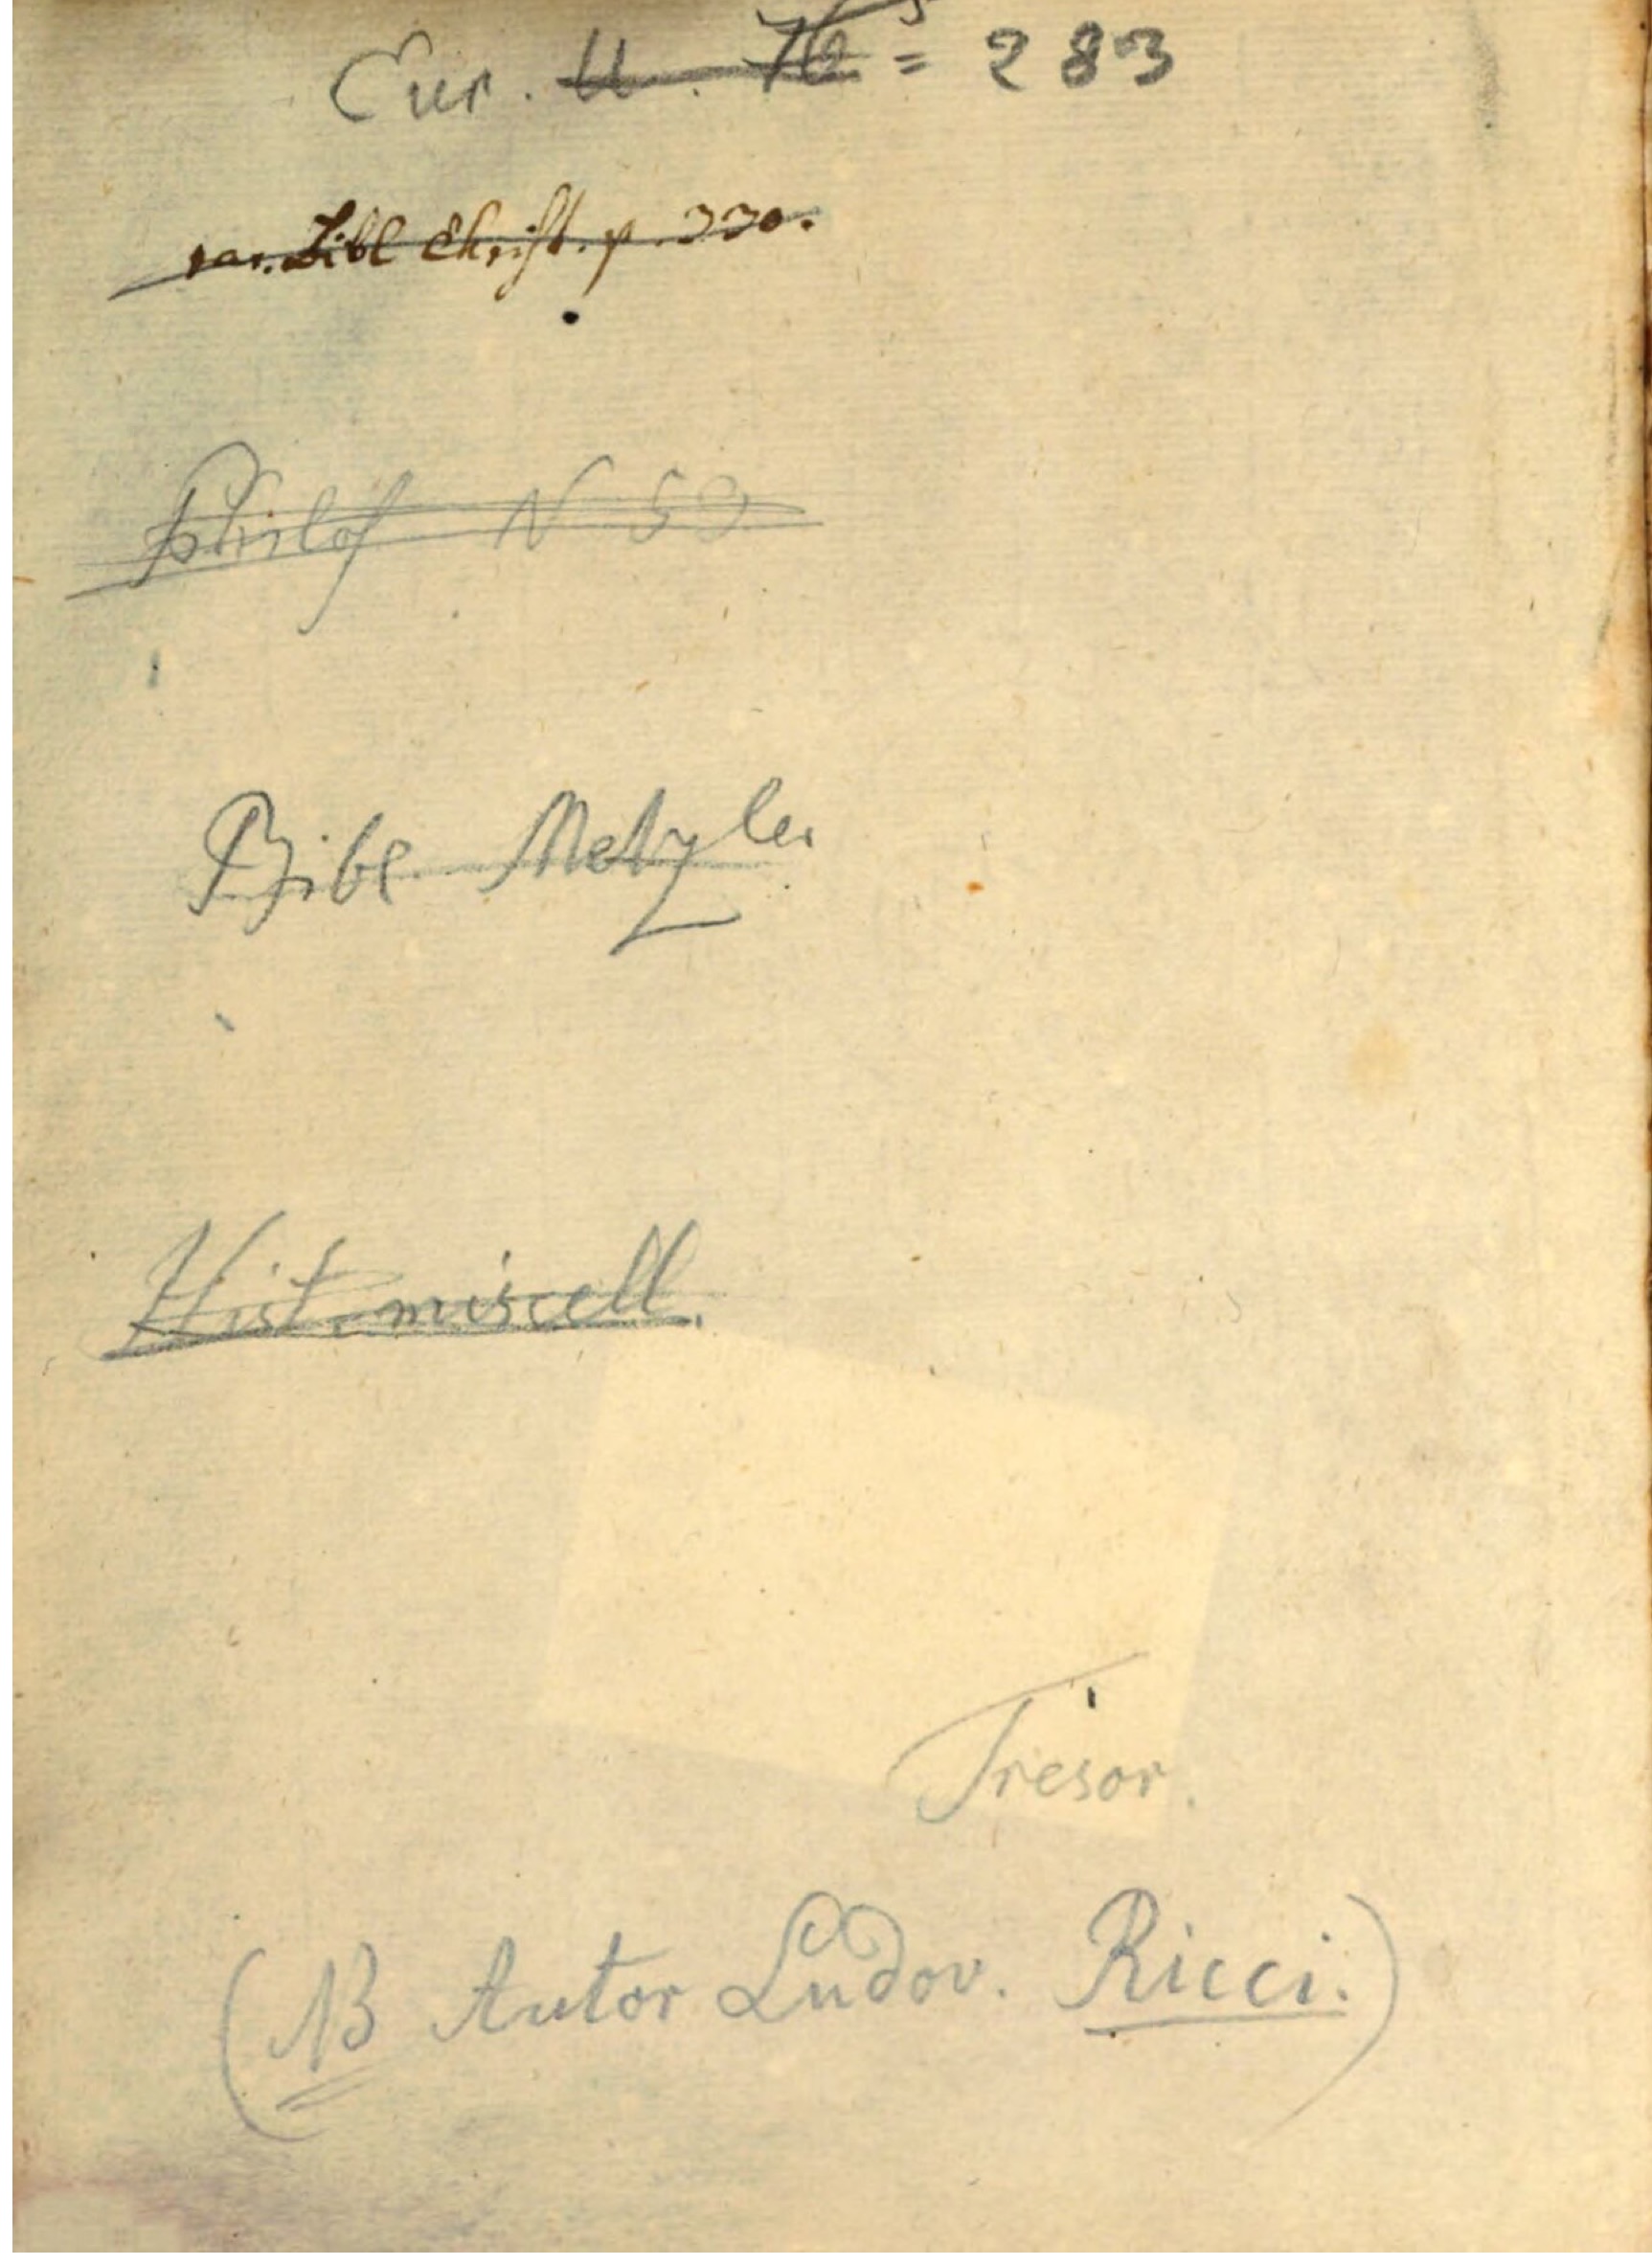 Cur. U. 76 = 283
rar. Bibl Christ. p. 330.
Philos N 53
Bibl. Metzler
Hist. miscell.
Tresor.
(NB Autor Ludov. Ricci.)